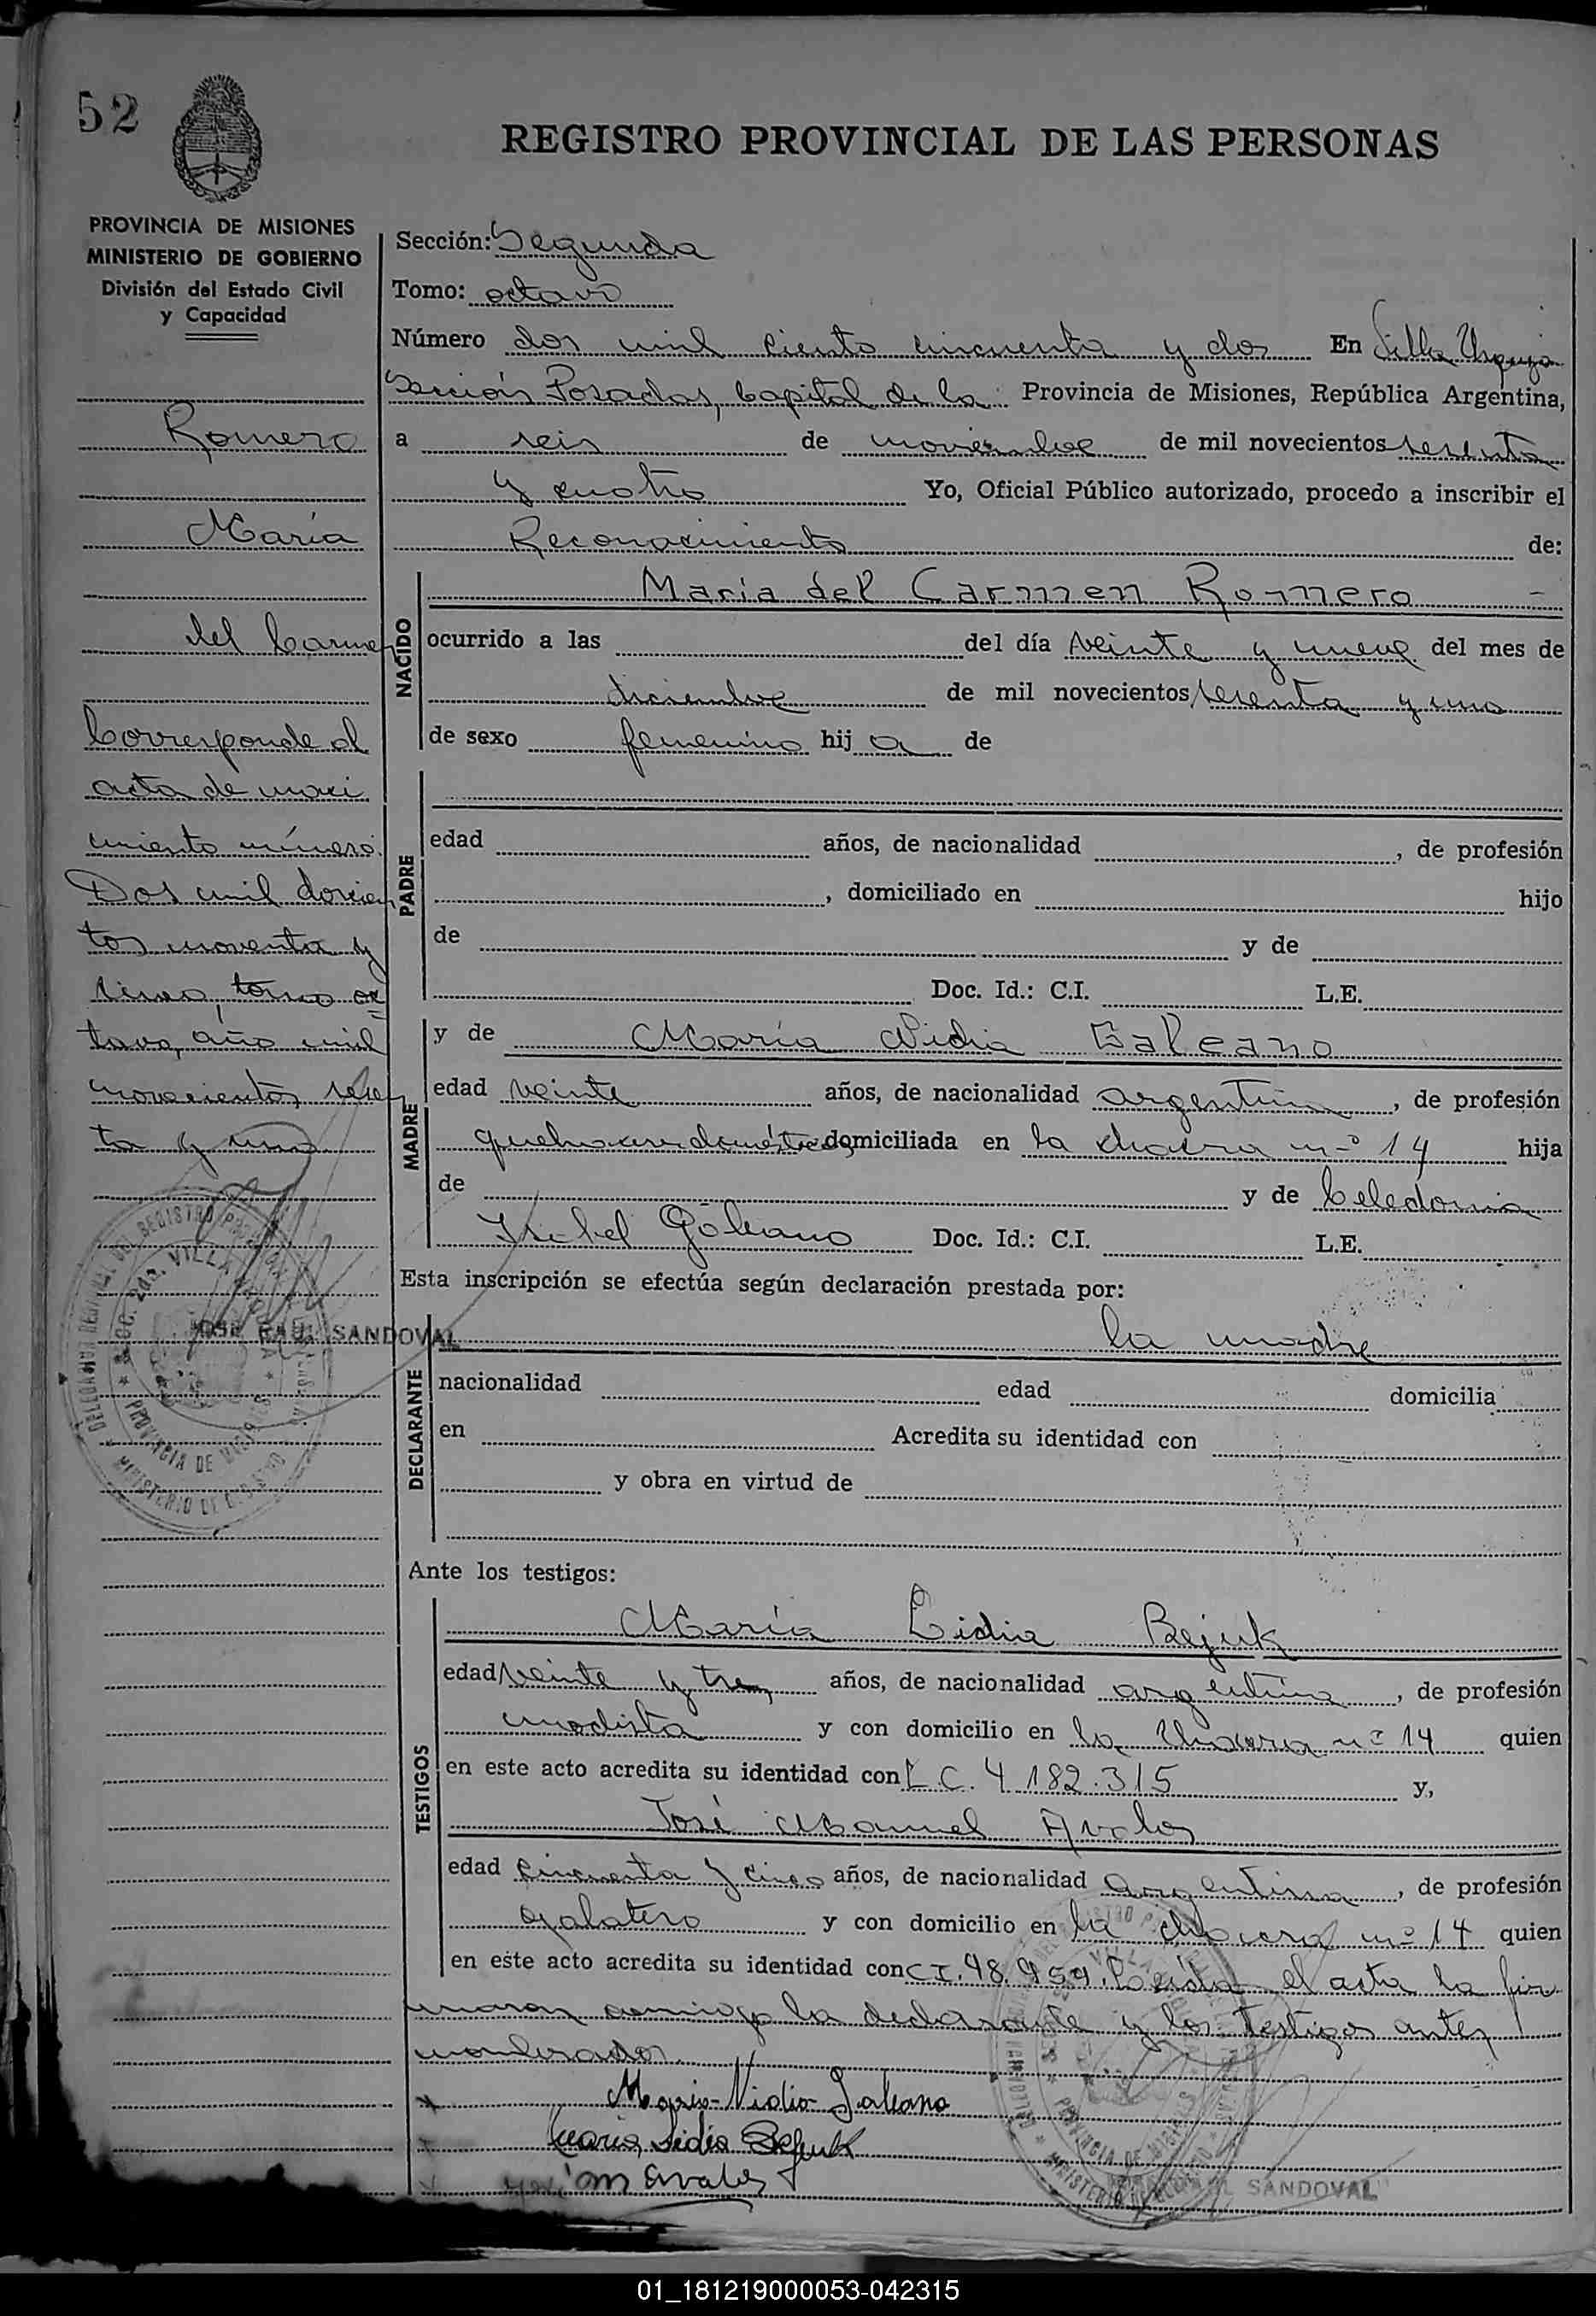 52
REGISTRO PROVINCIAL DE LAS PERSONAS
PROVINCIA DE MISIONES
MINISTERIO DE GOBIERNO
División del Estado Civil
y Capacidad
Romero
María
del Carmen
Corresponde al
acta de naci
miento número
Dos mil doscien
tos noventa y
cinco, tomo oc
tavo, año mil
novecientos sesen
ta y uno
JOSE RAUL SANDOVAL
Sección: Segunda
Tomo: octavo
Número dos mil ciento cincuenta y dos En Villa Urquiza
Sección Posadas, Capital de la Provincia de Misiones, República Argentina,
a seis de noviembre de mil novecientos sesenta
y cuatro Yo, Oficial Público autorizado, procedo a inscribir el
Reconocimiento de:
NACIDO
Maria del Carmen Romero
ocurrido a las del día veinte y nueve del mes de
diciembre de mil novecientos sesenta y uno
de sexo femenino hij a de
PADRE
edad años, de nacionalidad , de profesión
, domiciliado en hijo
de y de
Doc. Id.: C.I. L.E.
MADRE
y de María Nidia Galeano
edad veinte años, de nacionalidad argentina, de profesión
quehaceres domésticos, domiciliada en la chacra nº 14 hija
de y de Celedonia
Isabel Galeano Doc. Id.: C.I. L.E.
Esta inscripción se efectúa según declaración prestada por:
DECLARANTE
la madre
nacionalidad edad domicilia
en Acredita su identidad con
y obra en virtud de
Ante los testigos:
TESTIGOS
María Lidia Bejuk
edad veinte y tres años, de nacionalidad argentina, de profesión
modista y con domicilio en la chacra nº 14 quien
en este acto acredita su identidad con L C. 4 182.315 y,
José Manuel Avalos
edad cincuenta y cinco años, de nacionalidad argentina, de profesión
ojalatero y con domicilio en la chacra nº 14 quien
en este acto acredita su identidad con C I. 98.959. Leída el acta la fir
maron conmigo la declarante y los testigos antes
nombrados.
Maria Nidia Galeano
Maria Lidia Bejuk
José M Avalos
SANDOVAL
01_181219000053-042315